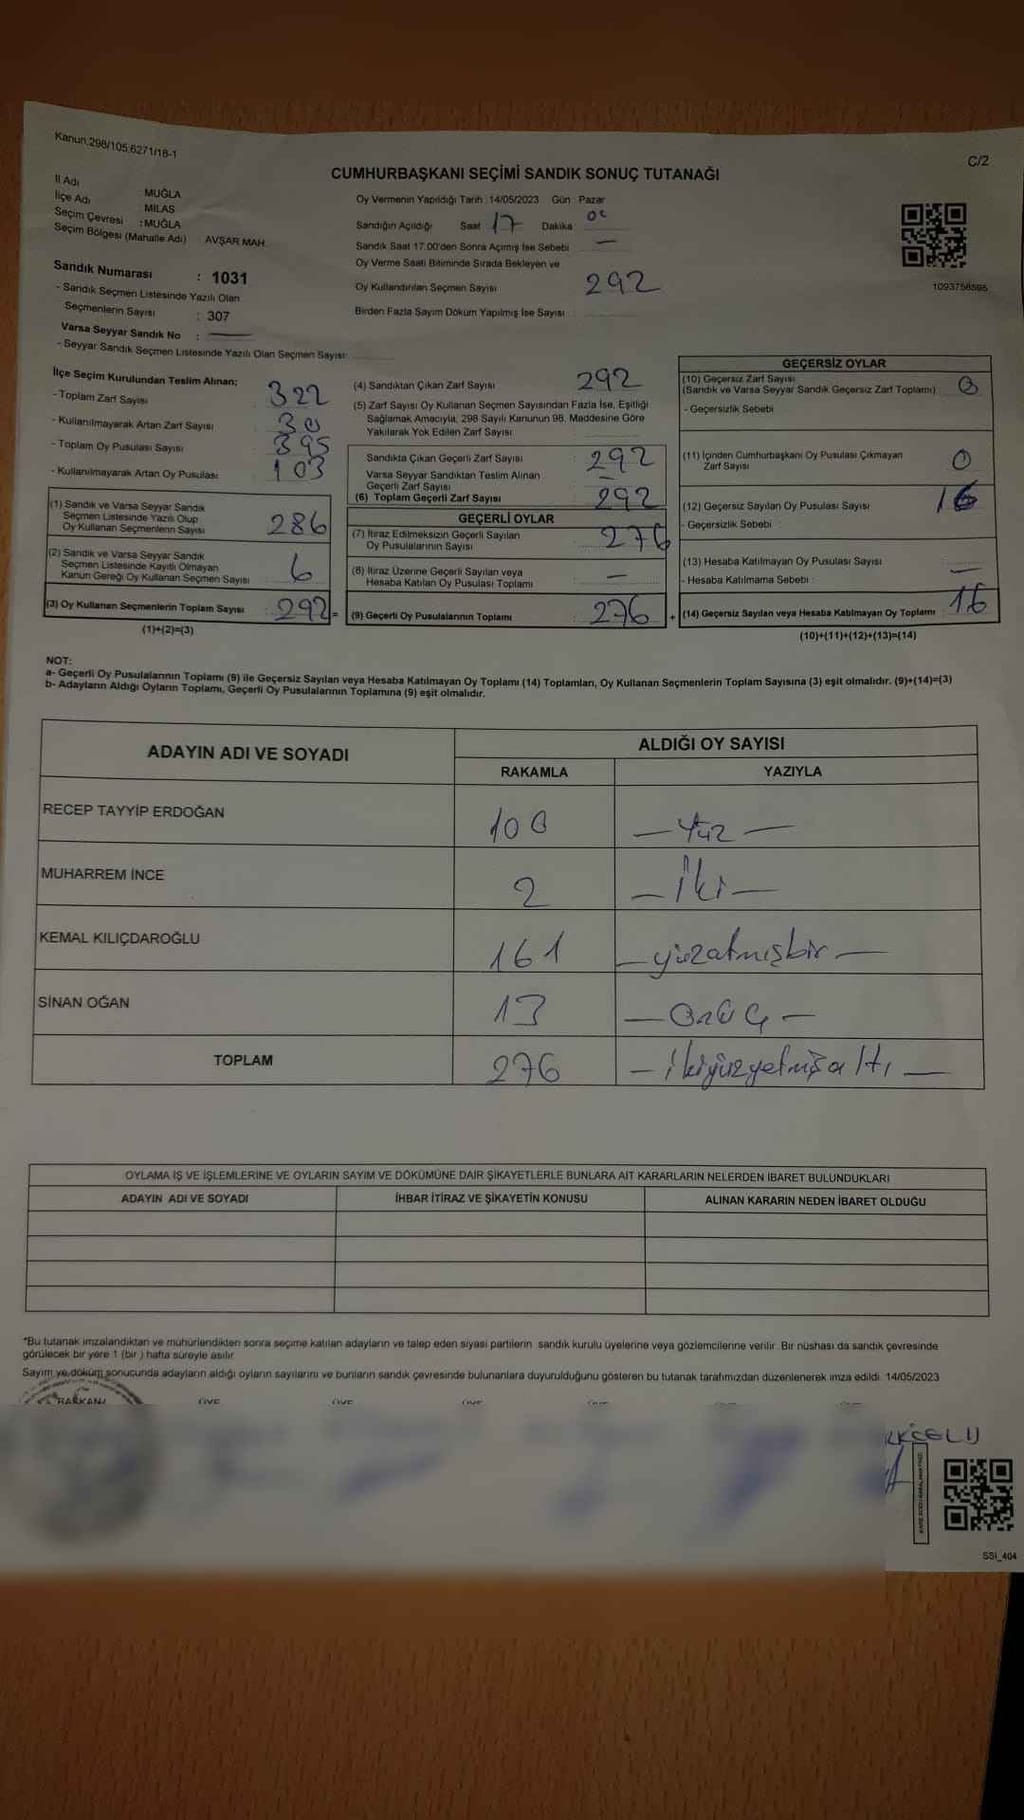 Kanun:298/105;6271/18-1
C/2
CUMHURBAŞKANI SEÇİMİ SANDIK SONUÇ TUTANAĞI
İl Adı MUĞLA
İlçe Adı MİLAS
Seçim Çevresi : MUĞLA
Seçim Bölgesi (Mahalle Adı) AVŞAR MAH.
Oy Vermenin Yapıldığı Tarih : 14/05/2023 Gün : Pazar
Sandığın Açıldığı Saat 17 Dakika
Sandık Saat 17.00'den Sonra Açılmış İse Sebebi —
Oy Verme Saati Bitiminde Sırada Bekleyen ve
Oy Kullandırılan Seçmen Sayısı 292
Birden Fazla Sayım Döküm Yapılmış İse Sayısı :
1093758595
Sandık Numarası : 1031
- Sandık Seçmen Listesinde Yazılı Olan
Seçmenlerin Sayısı : 307
Varsa Seyyar Sandık No : —
- Seyyar Sandık Seçmen Listesinde Yazılı Olan Seçmen Sayısı:
İlçe Seçim Kurulundan Teslim Alınan;
- Toplam Zarf Sayısı 322
- Kullanılmayarak Artan Zarf Sayısı 30
- Toplam Oy Pusulası Sayısı 395
- Kullanılmayarak Artan Oy Pusulası 103
(1) Sandık ve Varsa Seyyar Sandık
Seçmen Listesinde Yazılı Olup
Oy Kullanan Seçmenlerin Sayısı 286
(2) Sandık ve Varsa Seyyar Sandık
Seçmen Listesinde Kayıtlı Olmayan
Kanun Gereği Oy Kullanan Seçmen Sayısı 6
(3) Oy Kullanan Seçmenlerin Toplam Sayısı 292 =
(1)+(2)=(3)
(4) Sandıktan Çıkan Zarf Sayısı 292
(5) Zarf Sayısı Oy Kullanan Seçmen Sayısından Fazla İse, Eşitliği
Sağlamak Amacıyla, 298 Sayılı Kanunun 98. Maddesine Göre
Yakılarak Yok Edilen Zarf Sayısı
Sandıkta Çıkan Geçerli Zarf Sayısı : 292
Varsa Seyyar Sandıktan Teslim Alınan
Geçerli Zarf Sayısı —
(6) Toplam Geçerli Zarf Sayısı 292
GEÇERLİ OYLAR
(7) İtiraz Edilmeksizin Geçerli Sayılan
Oy Pusulalarının Sayısı : 276
(8) İtiraz Üzerine Geçerli Sayılan veya
Hesaba Katılan Oy Pusulası Toplamı —
(9) Geçerli Oy Pusulalarının Toplamı : 276 +
GEÇERSİZ OYLAR
(10) Geçersiz Zarf Sayısı
(Sandık ve Varsa Seyyar Sandık Geçersiz Zarf Toplamı) 0
- Geçersizlik Sebebi
(11) İçinden Cumhurbaşkanı Oy Pusulası Çıkmayan
Zarf Sayısı 0
(12) Geçersiz Sayılan Oy Pusulası Sayısı 16
- Geçersizlik Sebebi :
(13) Hesaba Katılmayan Oy Pusulası Sayısı —
- Hesaba Katılmama Sebebi :
(14) Geçersiz Sayılan veya Hesaba Katılmayan Oy Toplamı : 16
(10)+(11)+(12)+(13)=(14)
NOT:
a- Geçerli Oy Pusulalarının Toplamı (9) ile Geçersiz Sayılan veya Hesaba Katılmayan Oy Toplamı (14) Toplamları, Oy Kullanan Seçmenlerin Toplam Sayısına (3) eşit olmalıdır. (9)+(14)=(3)
b- Adayların Aldığı Oyların Toplamı, Geçerli Oy Pusulalarının Toplamına (9) eşit olmalıdır.
ADAYIN ADI VE SOYADI ALDIĞI OY SAYISI
RAKAMLA YAZIYLA
RECEP TAYYİP ERDOĞAN 100 — Yüz —
MUHARREM İNCE 2 — İki —
KEMAL KILIÇDAROĞLU 161 — yüzatmışbir —
SİNAN OĞAN 13 — Onüç —
TOPLAM 276 — ikiyüzyetmişaltı —
OYLAMA İŞ VE İŞLEMLERİNE VE OYLARIN SAYIM VE DÖKÜMÜNE DAİR ŞİKAYETLERLE BUNLARA AİT KARARLARIN NELERDEN İBARET BULUNDUKLARI
ADAYIN ADI VE SOYADI İHBAR İTİRAZ VE ŞİKAYETİN KONUSU ALINAN KARARIN NEDEN İBARET OLDUĞU
*Bu tutanak imzalandıktan ve mühürlendikten sonra seçime katılan adayların ve talep eden siyasi partilerin sandık kurulu üyelerine veya gözlemcilerine verilir. Bir nüshası da sandık çevresinde
görülecek bir yere 1 (bir ) hafta süreyle asılır.
Sayım ve döküm sonucunda adayların aldığı oyların sayılarını ve bunların sandık çevresinde bulunanlara duyurulduğunu gösteren bu tutanak tarafımızdan düzenlenerek imza edildi. 14/05/2023
BAŞKAN ÜYE ÜYE ÜYE ÜYE
SSI_404